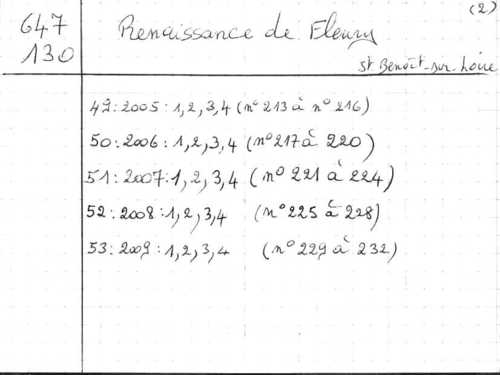 (2)
647
130
Renaissance de Fleury
St Benoît-sur-Loire
49:2005:1,2,3,4 (n° 213 à n° 216)
50:2006:1,2,3,4 (n° 217 à 220)
51:2007:1,2,3,4 (n° 221 à 224)
52:2008:1,2,3,4 (n° 225 à 228)
53:2009:1,2,3,4 (n° 229 à 232)